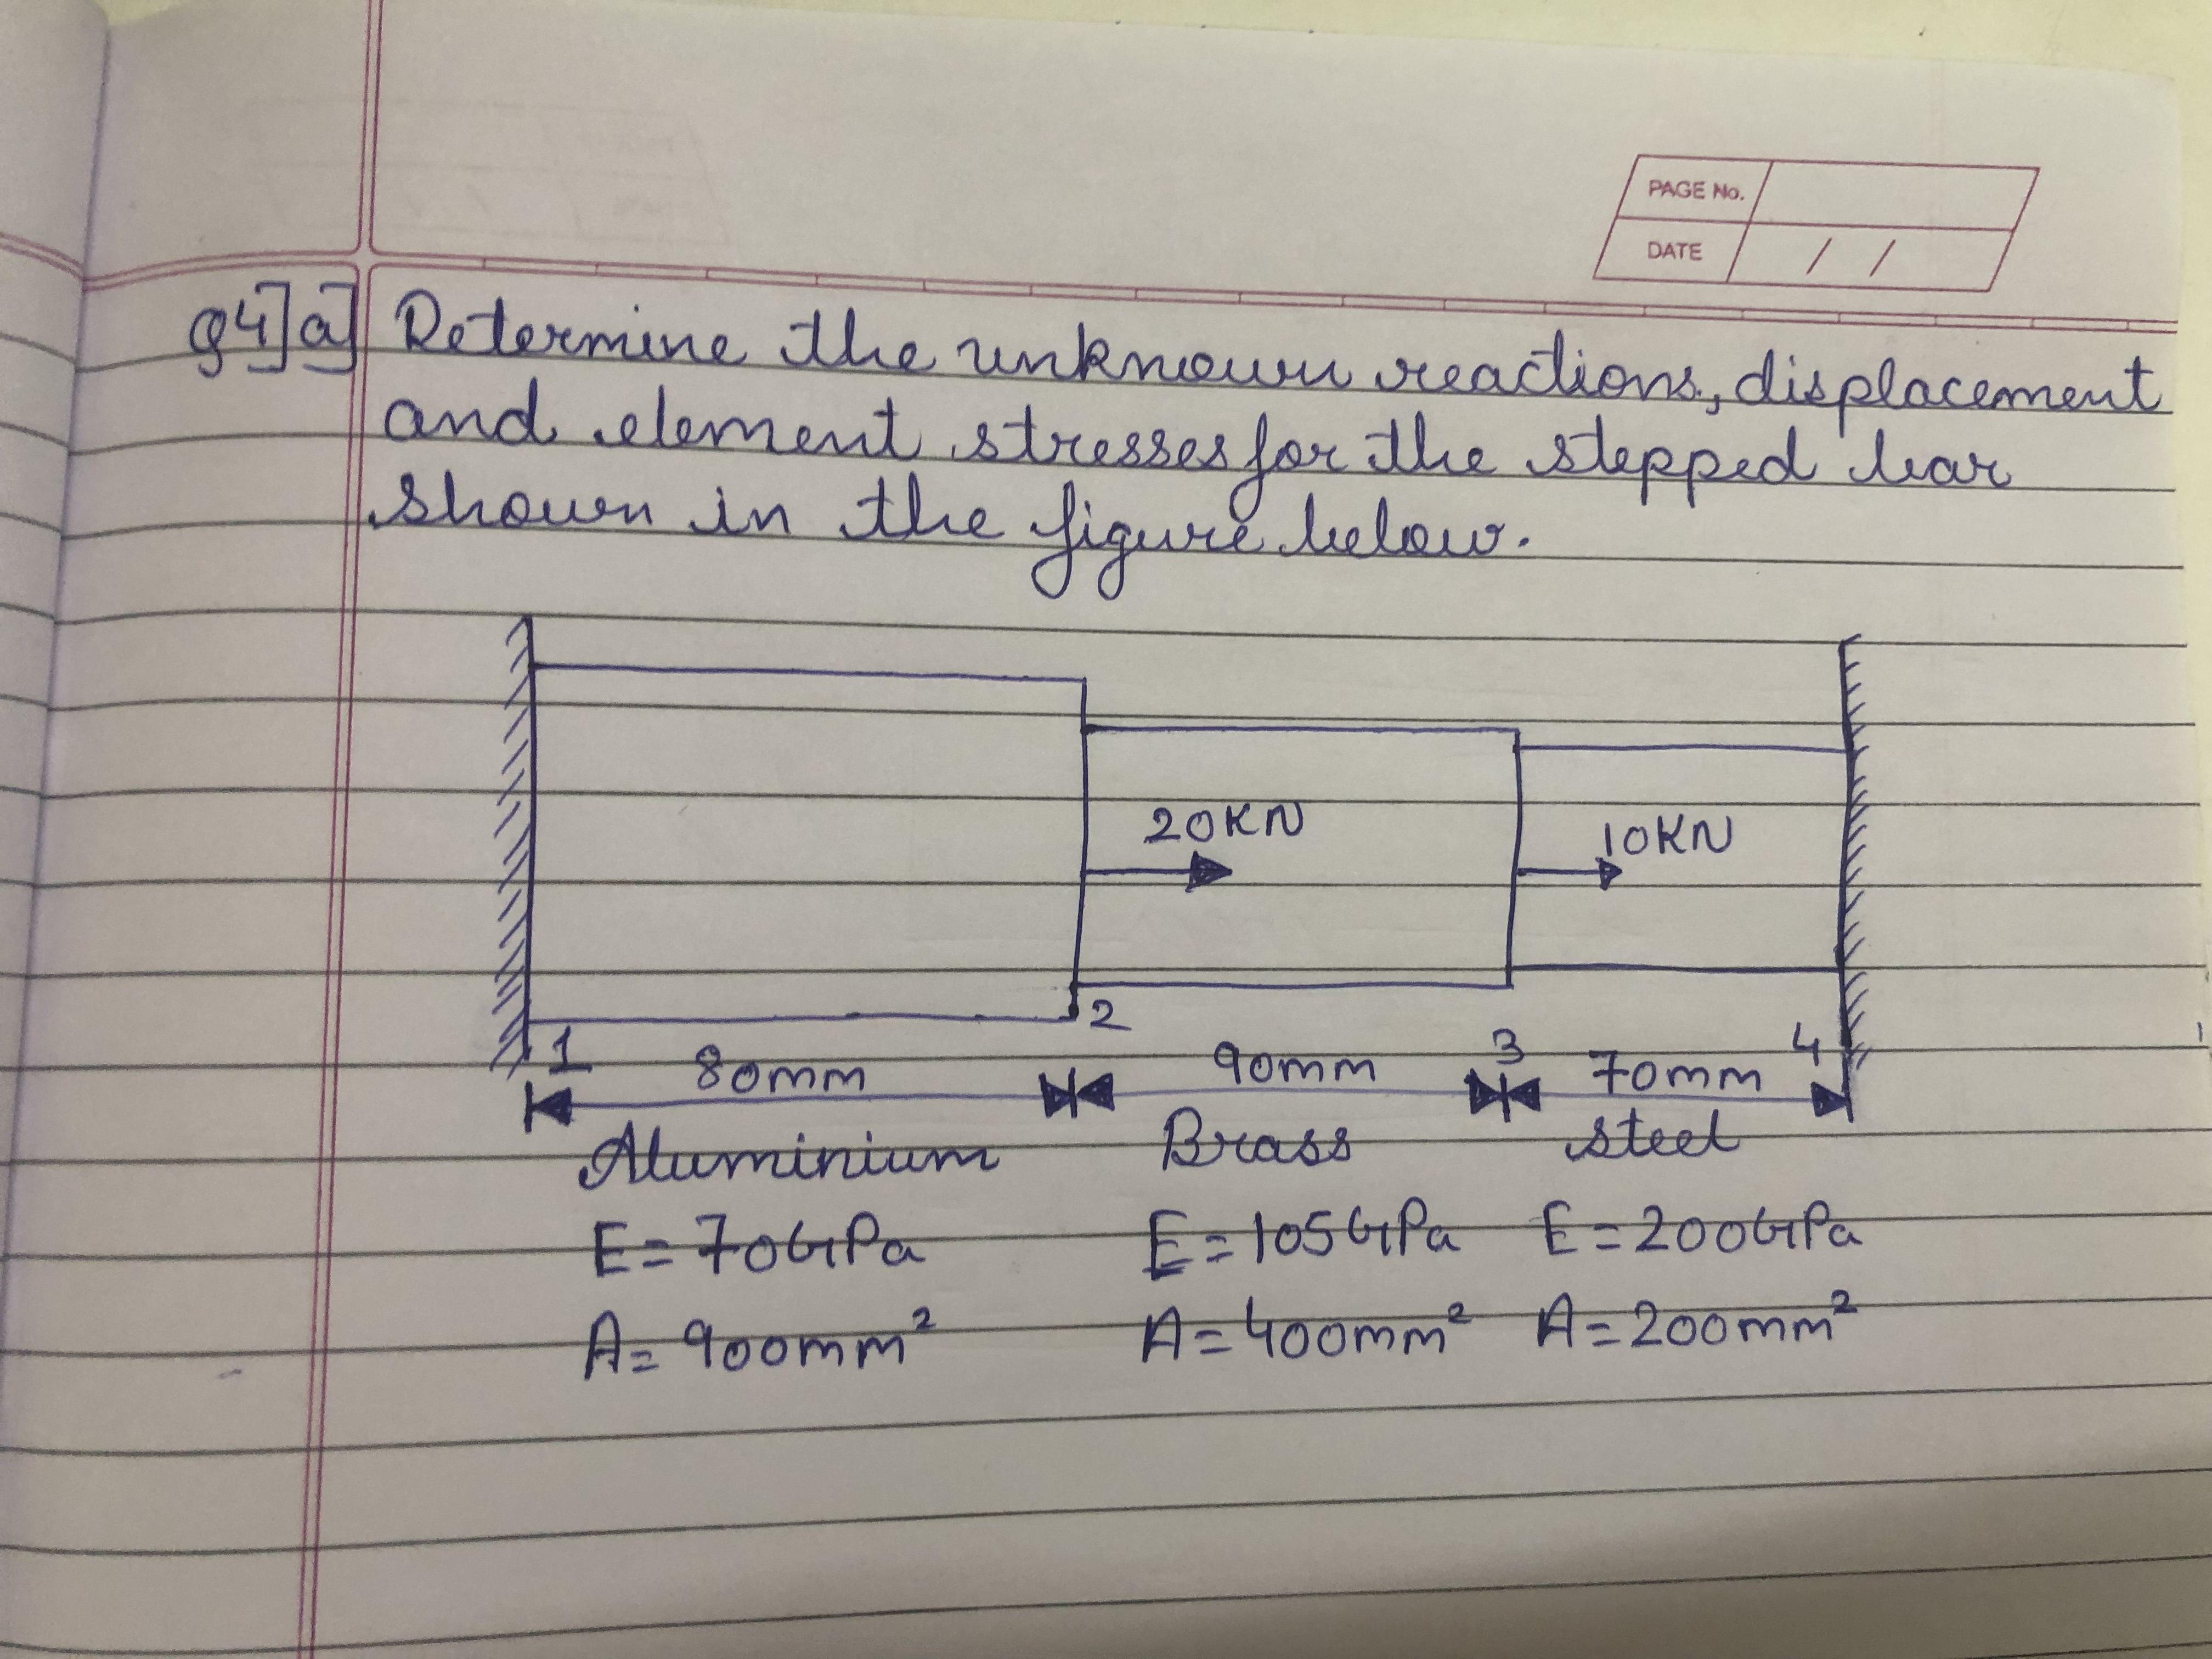 PAGE No.
DATE / /
Q4] a] Determine the unknown reactions, displacement
and element stresses for the stepped bar
shown in the figure below.
20KN
10KN
1 2 3 4
80mm 90mm 70mm
Aluminium Brass steel
E=70GPa E=105GPa E=200GPa
A=900mm² A=400mm² A=200mm²